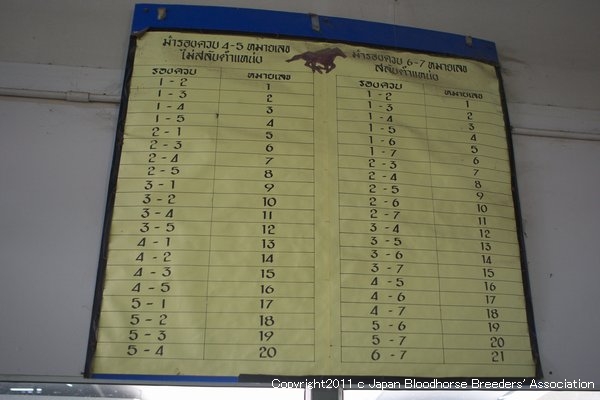 ม้ารอบควบ 4-5 หมายเลข
ไม่สลับตำแหน่ง
รอบควบ หมายเลข
1 - 2 1
1 - 3 2
1 - 4 3
1 - 5 4
2 - 1 5
2 - 3 6
2 - 4 7
2 - 5 8
3 - 1 9
3 - 2 10
3 - 4 11
3 - 5 12
4 - 1 13
4 - 2 14
4 - 3 15
4 - 5 16
5 - 1 17
5 - 2 18
5 - 3 19
5 - 4 20
ม้ารอบควบ 6-7 หมายเลข
สลับตำแหน่ง
รอบควบ หมายเลข
1 - 2 1
1 - 3 2
1 - 4 3
1 - 5 4
1 - 6 5
1 - 7 6
2 - 3 7
2 - 4 8
2 - 5 9
2 - 6 10
2 - 7 11
3 - 4 12
3 - 5 13
3 - 6 14
3 - 7 15
4 - 5 16
4 - 6 17
4 - 7 18
5 - 6 19
5 - 7 20
6 - 7 21
Copyright2011 c Japan Bloodhorse Breeders' Association